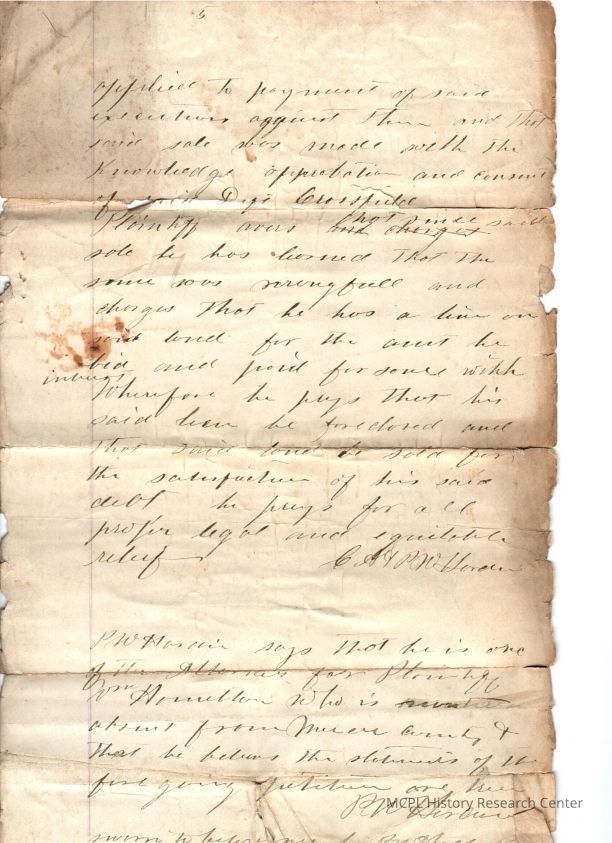 5
applied to payment of said
executions against them and that
said sale was made with the
Knowledge approbation and consent
of said Dft Crossfield
Plaintiff avers and charges that since said
sale he has learned that the
same was wrongfull and
charges that he has a lien on
said land for the amt he
bid and paid for same with
interest
Wherefore he prays that his
said lien be foreclosed and
that said land be sold for
the satisfaction of his said
debt he prays for all
proper legal and equitable
relief
C. A & P W Hardin
P W Hardin says that he is one
of the Attornies for Plaintiff
Wm Hamilton who is
absent from Mercer County &
that he believes the statements of the
foregoing petition are true
P W Hardin
MCPL History Research Center
sworn to before me